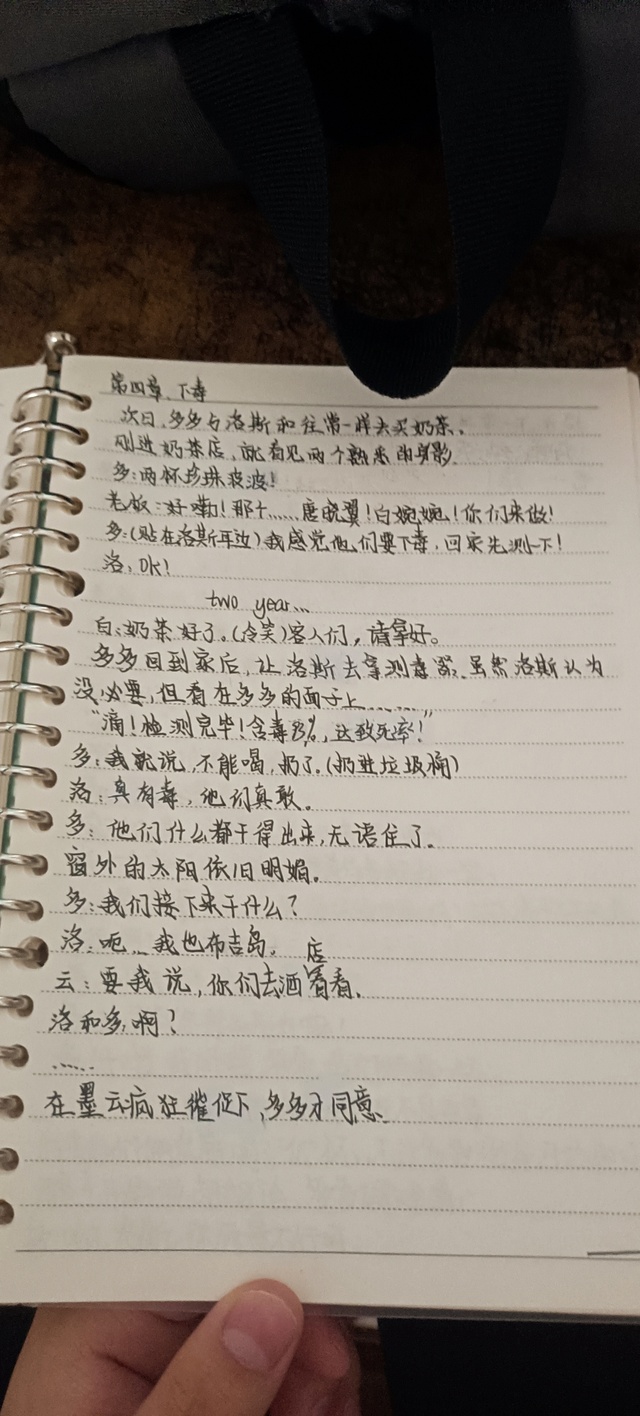 第四章、下毒
次日，多多与洛斯和往常一样去买奶茶、
刚进奶茶店，就看见两个熟悉的身影、
多：两杯珍珠波波！
老板：好嘞！那个……唐晓翼！白婉婉！你们来做！
多：(贴在洛斯耳边)我感觉他们要下毒，回家先测一下！
洛：OK！
two year...
白：奶茶好了。(冷笑)客人们，请拿好。
多多回到家后，让洛斯去拿测毒器、虽然洛斯认为
没必要，但看在多多的面子上…………
“滴！检测完毕！含毒83%，达致死率！”
多：我就说，不能喝，扔了。(扔进垃圾桶)
洛：真有毒，他们真敢。
多：他们什么都干得出来，无语住了。
窗外的太阳依旧明媚。
多：我们接下来干什么？
洛：呃…我也布吉岛。
云：要我说，你们去酒店看看、
洛和多：啊？
……
在墨云疯狂催促下、多多才同意、